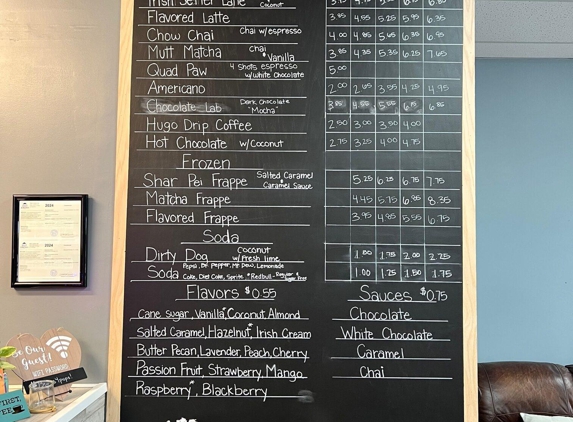 Irish Setter Latte Coconut 3.75 4.55 5.25 6.25
Flavored Latte 3.95 4.55 5.25 5.95 6.35
Chow Chai Chai w/espresso 4.00 4.85 5.65 6.35 6.95
Mutt Matcha Chai Vanilla 3.85 4.35 5.35 6.25 7.65
Quad Paw 4 shots espresso w/white chocolate 5.00
Americano 2.00 2.65 3.55 4.25 4.95
Chocolate Lab Dark Chocolate "Mocha" 6.85
Hugo Drip Coffee 2.50 3.00 3.50 4.00
Hot Chocolate w/Coconut 2.75 3.25 4.00 4.75
Frozen
Shar Pei Frappe Salted Caramel Caramel Sauce 5.25 6.25 6.75 7.75
Matcha Frappe 4.45 5.75 6.95 8.35
Flavored Frappe 3.95 4.85 5.55 6.75
Soda
Dirty Dog Coconut w/fresh lime 1.50 1.75 2.00 2.25
Pepsi, Dr. Pepper, Mt. Dew, Lemonade
Soda Coke, Diet Coke, Sprite, *Redbull - Regular & Sugar Free 1.00 1.25 1.50 1.75
Flavors $0.55 Sauces $0.75
Cane Sugar, Vanilla*, Coconut, Almond Chocolate
Salted Caramel, Hazelnut*, Irish Cream White Chocolate
Butter Pecan, Lavender, Peach, Cherry Caramel
Passion Fruit, Strawberry, Mango Chai
Raspberry*, Blackberry
Be Our
Guest
WIFI PASSWORD